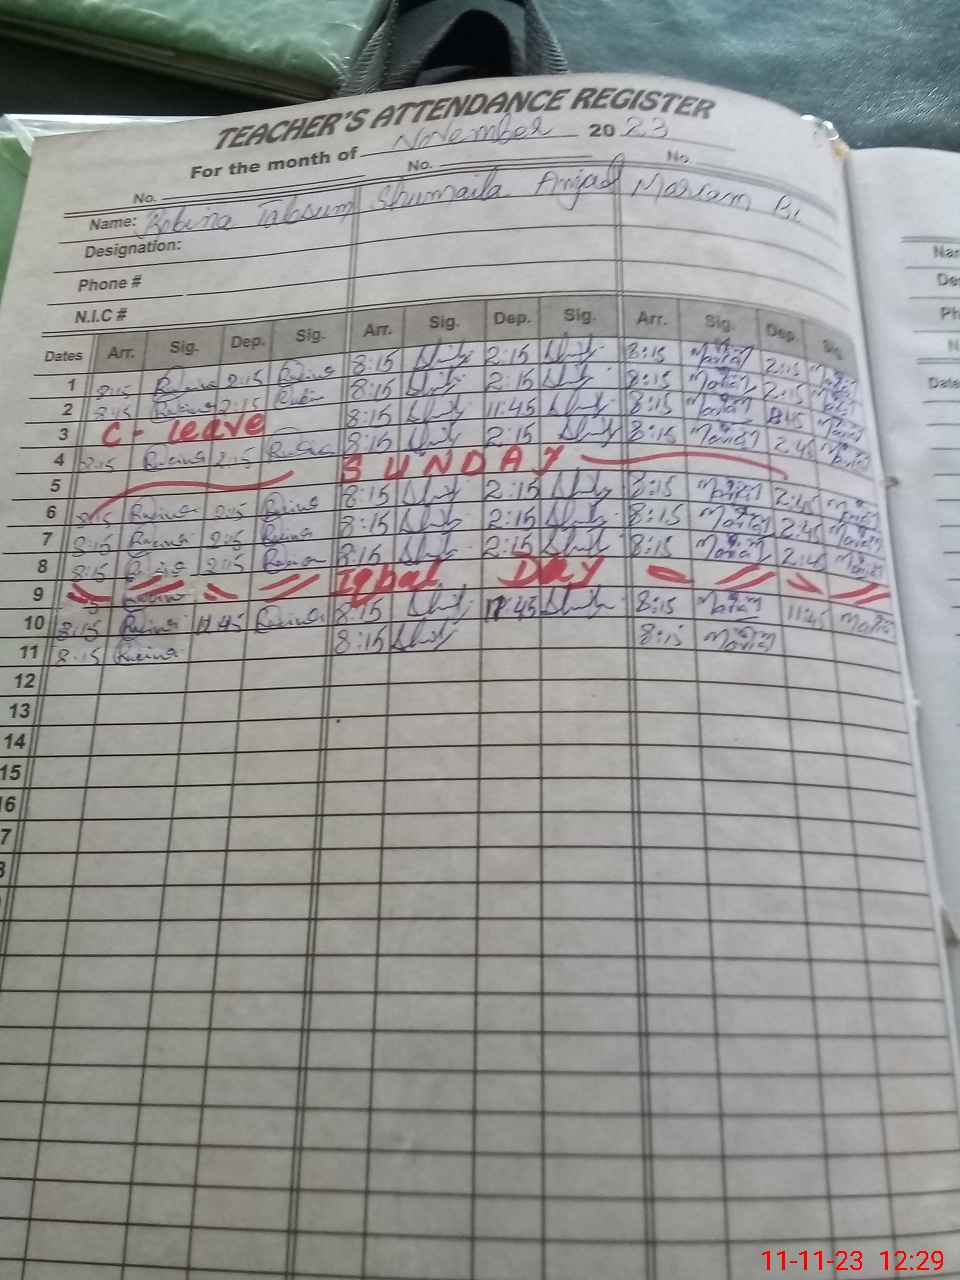 TEACHER'S ATTENDANCE REGISTER
For the month of November 2023
No. No. No.
Name: Robina Tabsum Shumaila Amjad Mariam Bi
Designation:
Phone #
N.I.C #
Dates Arr. Sig. Dep. Sig. Arr. Sig. Dep. Sig. Arr. Sig. Dep. Sig.
1 8:15 Rubina 2:15 Rubina 8:15 2:15 8:15 Mariam 2:15 Mariam
2 8:15 Rubina 2:15 Rubina 8:15 2:15 8:15 Mariam 2:15 Mariam
3 C - leave 8:15 11:45 8:15 Mariam Mariam
4 8:15 Rubina 2:15 Rubina 8:15 2:15 8:15 Mariam 2:45 Mariam
5 SUNDAY
6 8:15 Rubina 2:15 Rubina 8:15 2:15 8:15 Mariam 2:45 Mariam
7 8:15 Rubina 2:15 Rubina 8:15 2:15 8:15 Mariam 2:45 Mariam
8 8:15 Rubina 2:15 Rubina 8:15 2:15 8:15 Mariam 2:45 Mariam
9 Iqbal Day
10 8:15 Rubina 11:45 Rubina 8:15 11:45 8:15 Mariam 11:45 Mariam
11 8:15 Rubina 8:15 8:15 Mariam
12
13
14
15
16
7
8
Nar
De
Ph
N
Date
11-11-23 12:29